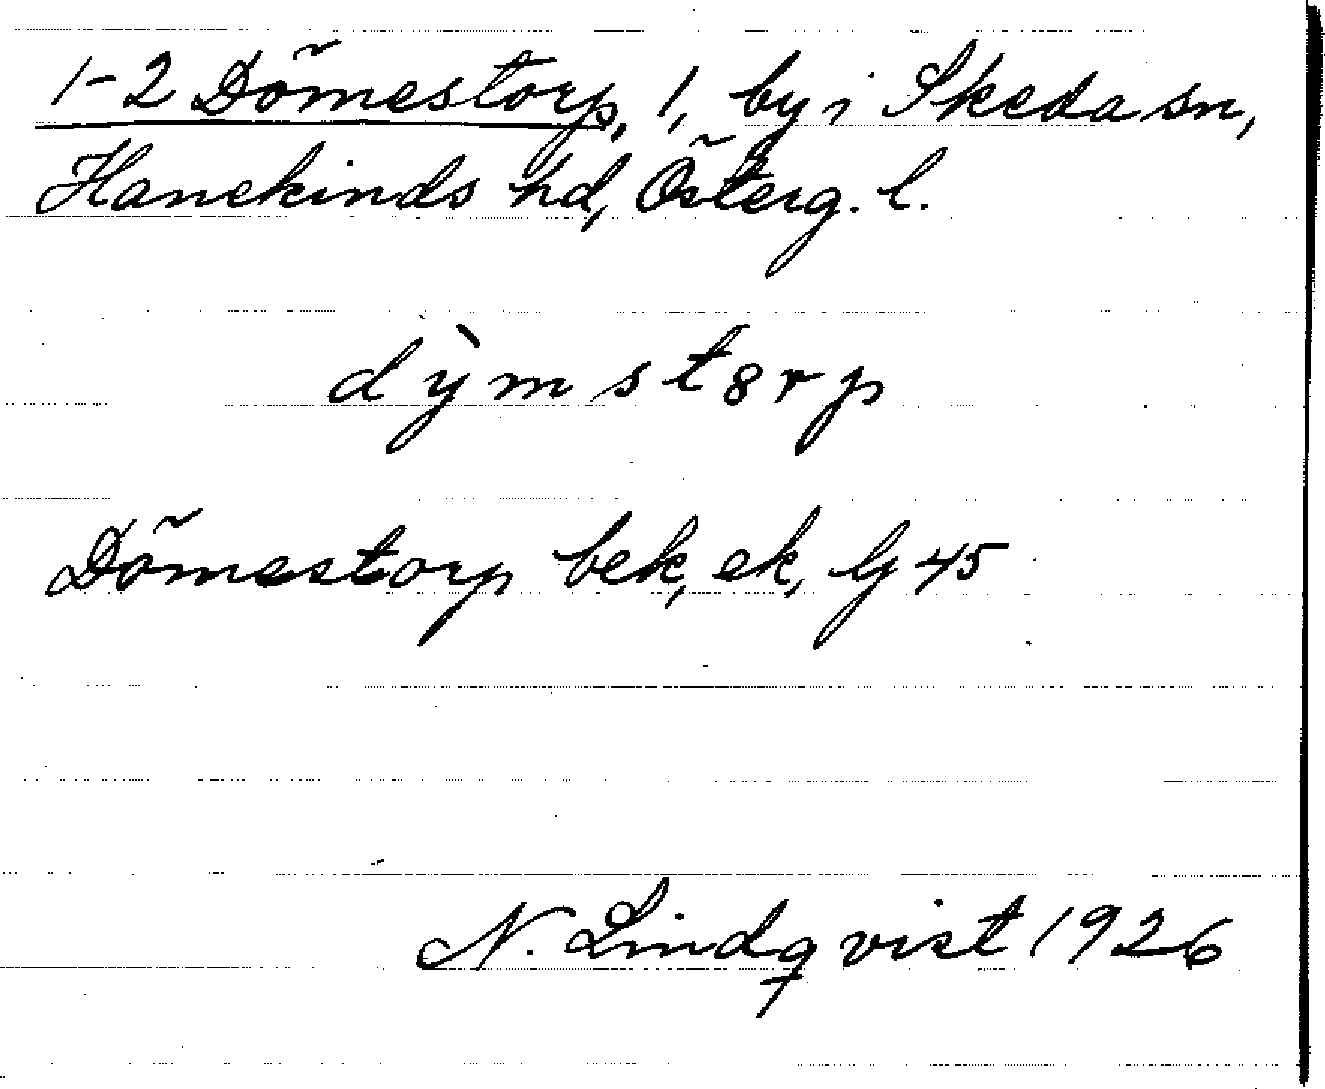 1-2 Dömestorp, 1, by i Skeda sn,
Hanekinds hd, Österg. l.
dỳmst8rp
Dömestorp bek, ek, lj 45
N. Lindqvist 1926